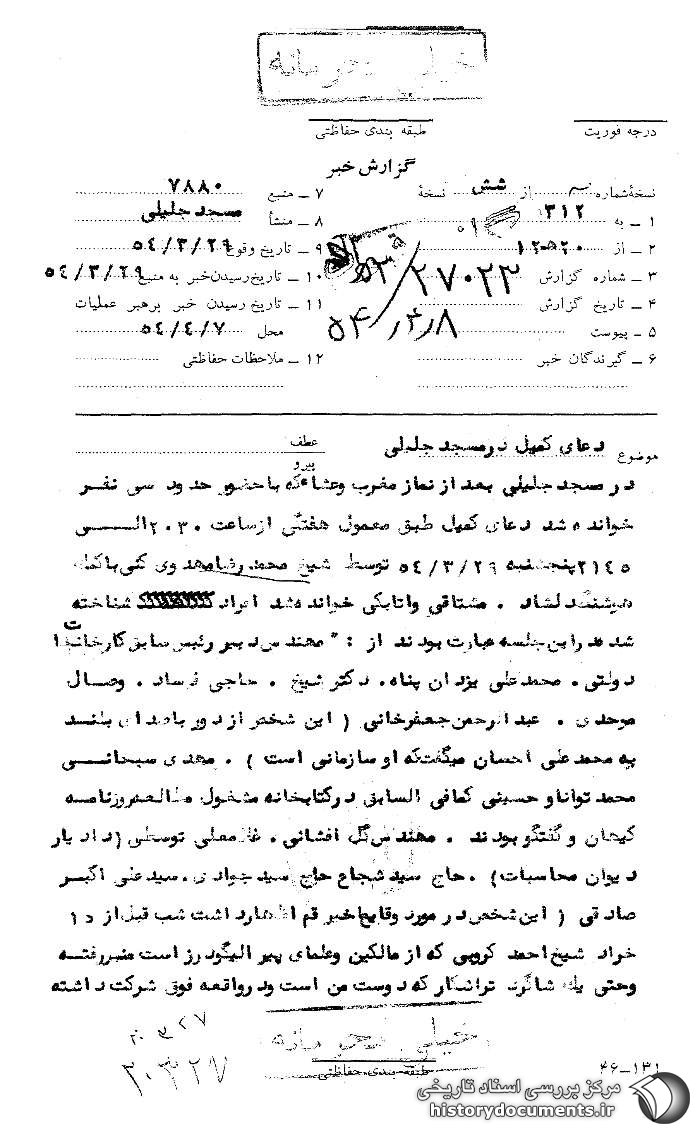 خیلی محرمانه
درجه فوریت
طبقه بندی حفاظتی
گزارش خبر
نسخهٔ شماره از شش نسخهٔ
۱ – به ۳۱۲
۲ – از
۳ – شماره گزارش ۲۷۰۲۳
۴ – تاریخ گزارش ۵۴/۴/۸
۵ – پیوست
۶ – گیرندگان خبر
۷ – منبع ۷۸۸۰
۸ – منشأ مسجد جلیلی
۹ – تاریخ وقوع ۵۴/۳/۲۹
۱۰ – تاریخ رسیدن خبر به منبع ۵۴/۳/۲۹
۱۱ – تاریخ رسیدن خبر برهبر عملیات
محل ۵۴/۴/۷
۱۲ – ملاحظات حفاظتی
موضوع دعای کمیل در مسجد جلیلی
عطف
پیرو
در مسجد جلیلی بعد از نماز مغرب وعشاء که با حضور حدود سی نفر
خوانده شد دعای کمیل طبق معمول هفتگی از ساعت ۲۰۳۰ الـــی
۲۱۴۵ پنجشنبه ۵۴/۳/۲۹ توسط شیخ محمد رضا مهدوی کنی با کمک
هوشنگ دلشاد . مشتاقی واتابکی خوانده شد افراد شناخته
شده در این جلسه عبارت بودند از : " مهندس دبیر رئیس سابق کارخانجات
دولتی . محمد علی یزدان پناه . دکتر شیخ . حاجی فرساد . وصال
موحدی . عبدالرحمن جعفرخانی ( این شخص از دور با صدای بلنـد
به محمد علی احسان میگفت که او سازمانی است ) . مهدی سبحانــی
محمد توانا و حسینی کمافی السابق در کتابخانه مشغول مطالعه روزنامـه
کیهان و گفتگو بودند . مهندس گل افشانی . غلامعلی توسطی ( دادیار
دیوان محاسبات ) . حاج سید شجاع حاج سید جوادی . سید علی اکبـر
صادقی ( این شخص در مورد وقایع اخیر قم اظهار داشت شب قبل از ۱۵
خرداد شیخ احمد کروبی که از مالکین وعلمای پیر الیگودرز است منبر رفتــه
وحتی یک شاگرد تراشکار که دوست من است ودر واقعه فوق شرکت داشته
خیلی محرمانه
طبقه بندی حفاظتی
۲۰۳۲۷
۴۶–۱۳۱
مرکز بررسی اسناد تاریخی
historydocuments.ir